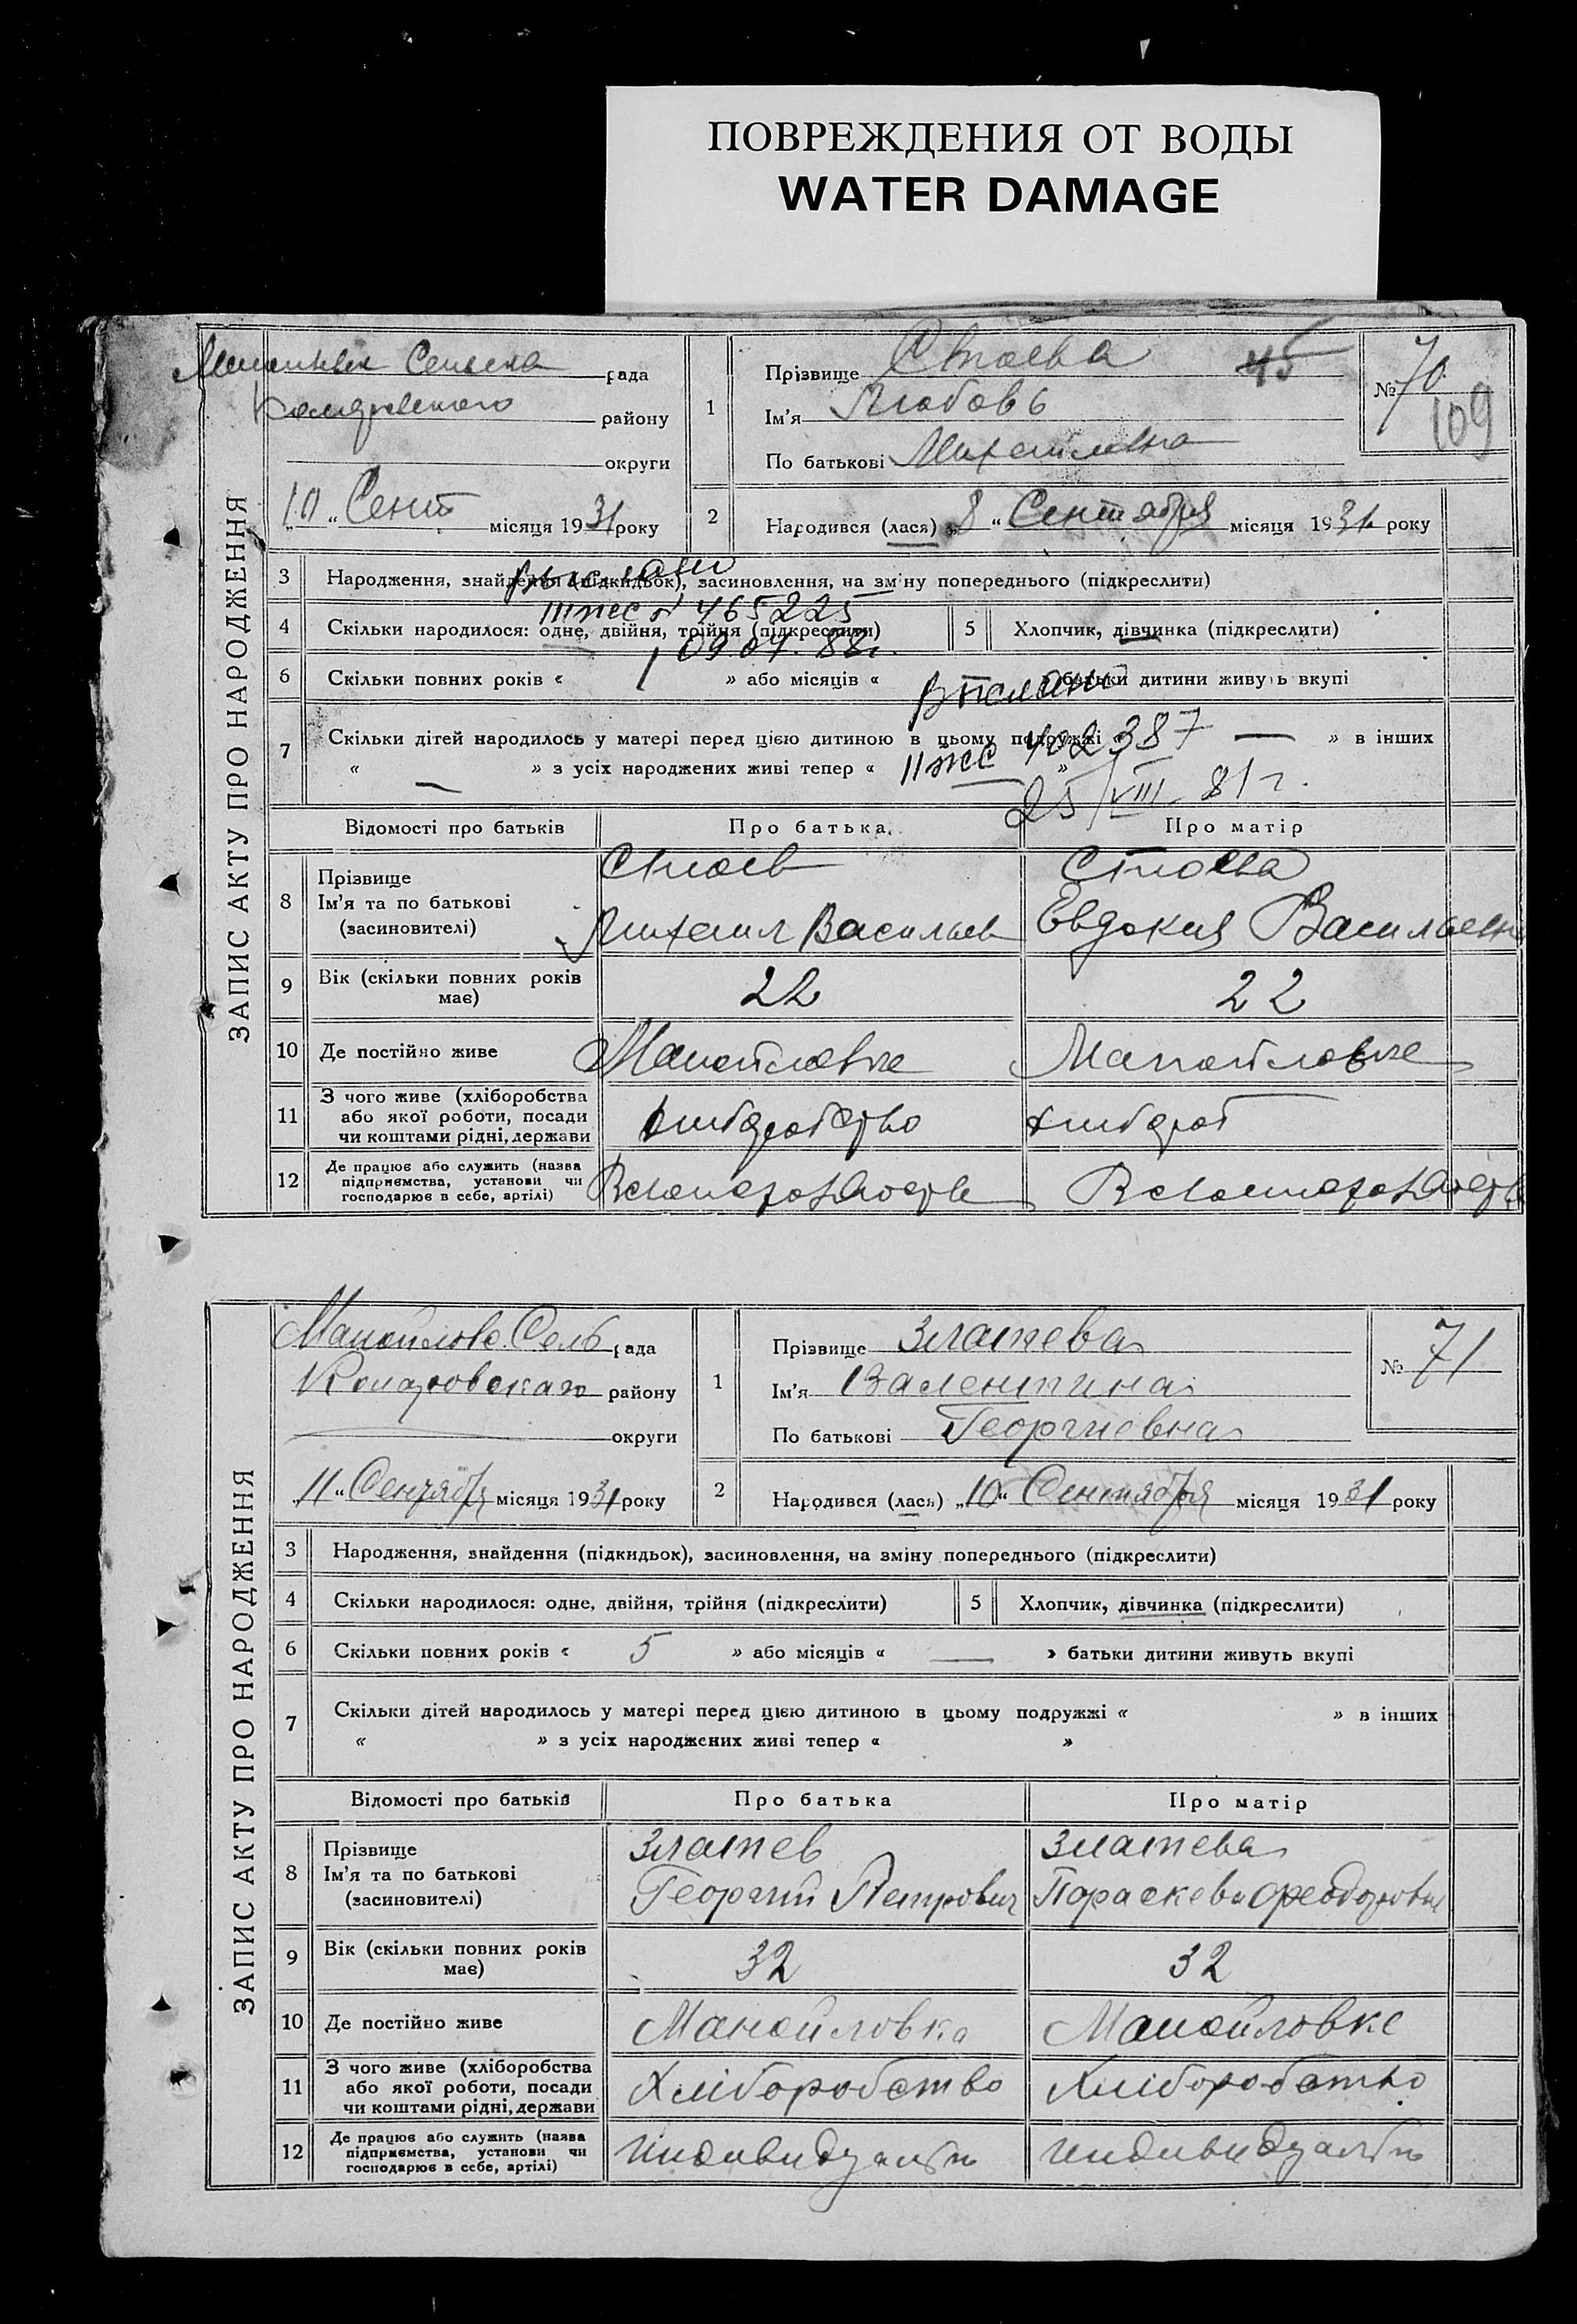 ПОВРЕЖДЕНИЯ ОТ ВОДЫ
WATER DAMAGE
ЗАПИС АКТУ ПРО НАРОДЖЕННЯ
рада
району
округи
"10" Сент місяця 1931 року
1
Прізвище Стоева 45
Ім'я Любовь
По батькові Михайловна
№ 70
109
2
Народився (лася) „8“ Сентября місяця 1931 року
3 Народження, знайдення (підкидьок), засиновлення, на зміну попереднього (підкреслити)
Выслано
III ЖС № 465225
09.04.88г.
4 Скільки народилося: одне, двійня, трійня (підкреслити)
5 Хлопчик, дівчинка (підкреслити)
6 Скільки повних років « 1 » або місяців « — » батьки дитини живуть вкупі
7 Скільки дітей народилось у матері перед цією дитиною в цьому подружжі « — » в інших
« — » з усіх народжених живі тепер « — »
II ЖС 402387
25/VIII-81г.
Відомості про батьків Про батька Про матір
8 Прізвище
Ім'я та по батькові
(засиновителі)
Стоев
Михаил Васильев
Стоева
Евдокия Васильевна
9 Вік (скільки повних років
має)
22 22
10 Де постійно живе Манойловке Манойловке
11 З чого живе (хліборобства
або якої роботи, посади
чи коштами рідні, держави
12 Де працює або служить (назва
підприємства, установи чи
господарює в себе, артілі)
ЗАПИС АКТУ ПРО НАРОДЖЕННЯ
Манойлово Сель рада
району
округи
„11“ Сентября місяця 1931 року
1
Прізвище Златева
Ім'я Валентина
По батькові Георгиевна
№ 71
2
Народився (лася) „10“ Сентября місяця 1931 року
3 Народження, знайдення (підкидьок), засиновлення, на зміну попереднього (підкреслити)
4 Скільки народилося: одне, двійня, трійня (підкреслити)
5 Хлопчик, дівчинка (підкреслити)
6 Скільки повних років « 5 » або місяців « — » батьки дитини живуть вкупі
7 Скільки дітей народилось у матері перед цією дитиною в цьому подружжі « » в інших
« » з усіх народжених живі тепер « »
Відомості про батьків Про батька Про матір
8 Прізвище
Ім'я та по батькові
(засиновителі)
Златев
Георгий Петрович
Златева
Параскева Феодоровна
9 Вік (скільки повних років
має)
32 32
10 Де постійно живе Манойловка Манойловке
11 З чого живе (хліборобства
або якої роботи, посади
чи коштами рідні, держави
Хліборобство Хліборобство
12 Де працює або служить (назва
підприємства, установи чи
господарює в себе, артілі)